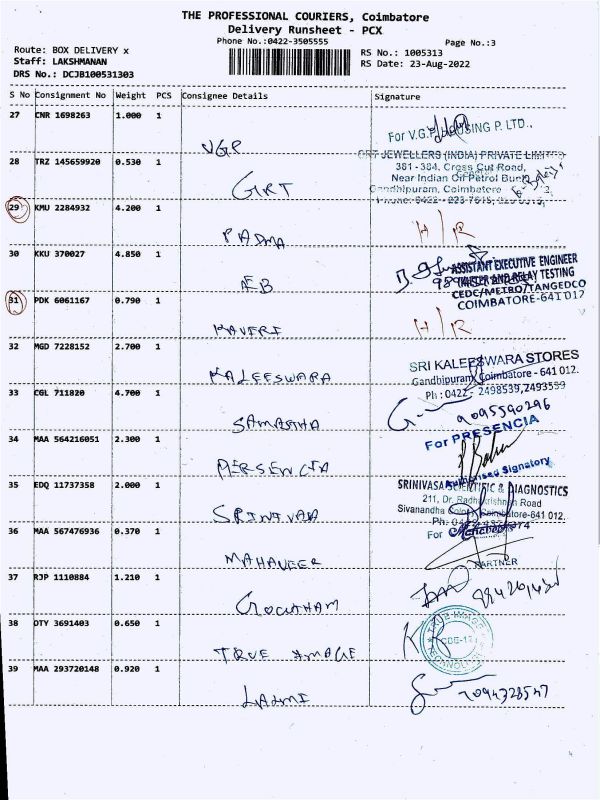 THE PROFESSIONAL COURIERS, Coimbatore
Delivery Runsheet - PCX
Phone No.:0422-3505555
Page No.:3
Route: BOX DELIVERY x
Staff: LAKSHMANAN
DRS No.: DCJB100531303
RS No.: 1005313
RS Date: 23-Aug-2022
S No Consignment No Weight PCS Consignee Details Signature
27 CNR 1698263 1.000 1
VGP
For V.G.P. HOUSING P. LTD.,
28 TRZ 145659920 0.530 1
GRT
GRT JEWELLERS (INDIA) PRIVATE LIMITED
381 - 384, Cross Cut Road,
Near Indian Oil Petrol Bunk,
Gandhipuram, Coimbatore
29 KMU 2284932 4.200 1
PADMA
H/R
30 KKU 370027 4.850 1
EB
ASSISTANT EXECUTIVE ENGINEER
METER AND RELAY TESTING
CEDC/METRO/TANGEDCO
COIMBATORE-641 012
31 PDK 6061167 0.790 1
KAVERI
H/R
32 MGD 7228152 2.700 1
KALEESWARA
SRI KALEESWARA STORES
Gandhipuram, Coimbatore - 641 012.
Ph : 0422 - 2498539, 2493599
33 CGL 711820 4.700 1
SAMASTHA
9095590296
34 MAA 564216051 2.300 1
PERSENCIA
For PRESENCIA
Authorised Signatory
35 EDQ 11737358 2.000 1
SRINIVAA
SRINIVASA SCIENTIFIC & DIAGNOSTICS
211, Dr. Radhakrishnan Road
Sivanandha Colony, Coimbatore-641 012.
36 MAA 567476936 0.370 1
MAHAVEER
For
PARTNER
37 RJP 1110884 1.210 1
GOUTHAM
38 DTY 3691403 0.650 1
TRUE IMAGE
39 MAA 293720148 0.920 1
LAXMI
7094328547